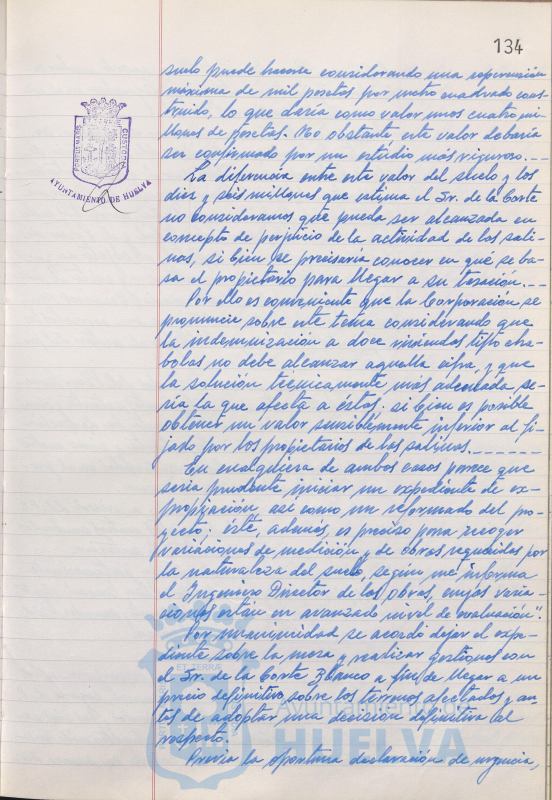 134
suelo puede hacerse considerando una repercusión
máxima de mil pesetas por metro cuadrado cons-
truido, lo que daría como valor unos cuatro mi-
llones de pesetas. No obstante este valor debería
ser confirmado por un estudio más riguroso.
La diferencia entre este valor del suelo y los
diez y seis millones que estima el Sr. de la Corte
no consideramos que pueda ser alcanzada en
concepto de perjuicio de la actividad de las sali-
nas, si bien se precisaría conocer en qué se ba-
sa el propietario para llegar a su tasación.
Por ello es conveniente que la Corporación se
pronuncie sobre este tema considerando que
la indemnización a doce viviendas tipo cha-
bolas no debe alcanzar aquella cifra, y que
la solución técnicamente más adecuada se-
ría la que afecta a éstas, si bien es posible
obtener un valor sensiblemente inferior al fi-
jado por los propietarios de las salinas.
En cualquiera de ambos casos parece que
sería prudente iniciar un expediente de ex-
propiación, así como un reformado del pro-
yecto; éste, además, es preciso para recoger
variaciones de medición y de obras requeridas por
la naturaleza del suelo, según me informa
el Ingeniero Director de las obras, cuyas varia-
ciones están en avanzado nivel de evaluación".
Por unanimidad se acordó dejar el expe-
diente sobre la mesa y realizar gestiones con
el Sr. de la Corte Blanco a fin de llegar a un
precio definitivo sobre los terrenos afectados y an-
tes de adoptar una decisión definitiva al
respecto.
Previa la oportuna declaración de urgencia,
AYUNTAMIENTO DE HUELVA
Ayuntamiento de
HUELVA